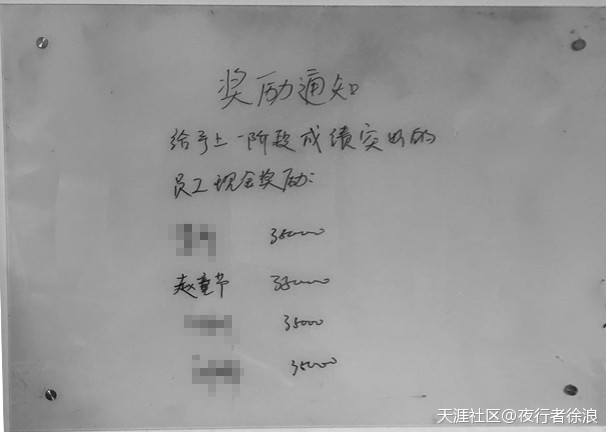 奖励通知
给予上一阶段成绩突出的
员工现金奖励:
35000
赵童节 35000
35000
35000
天涯社区@夜行者徐浪